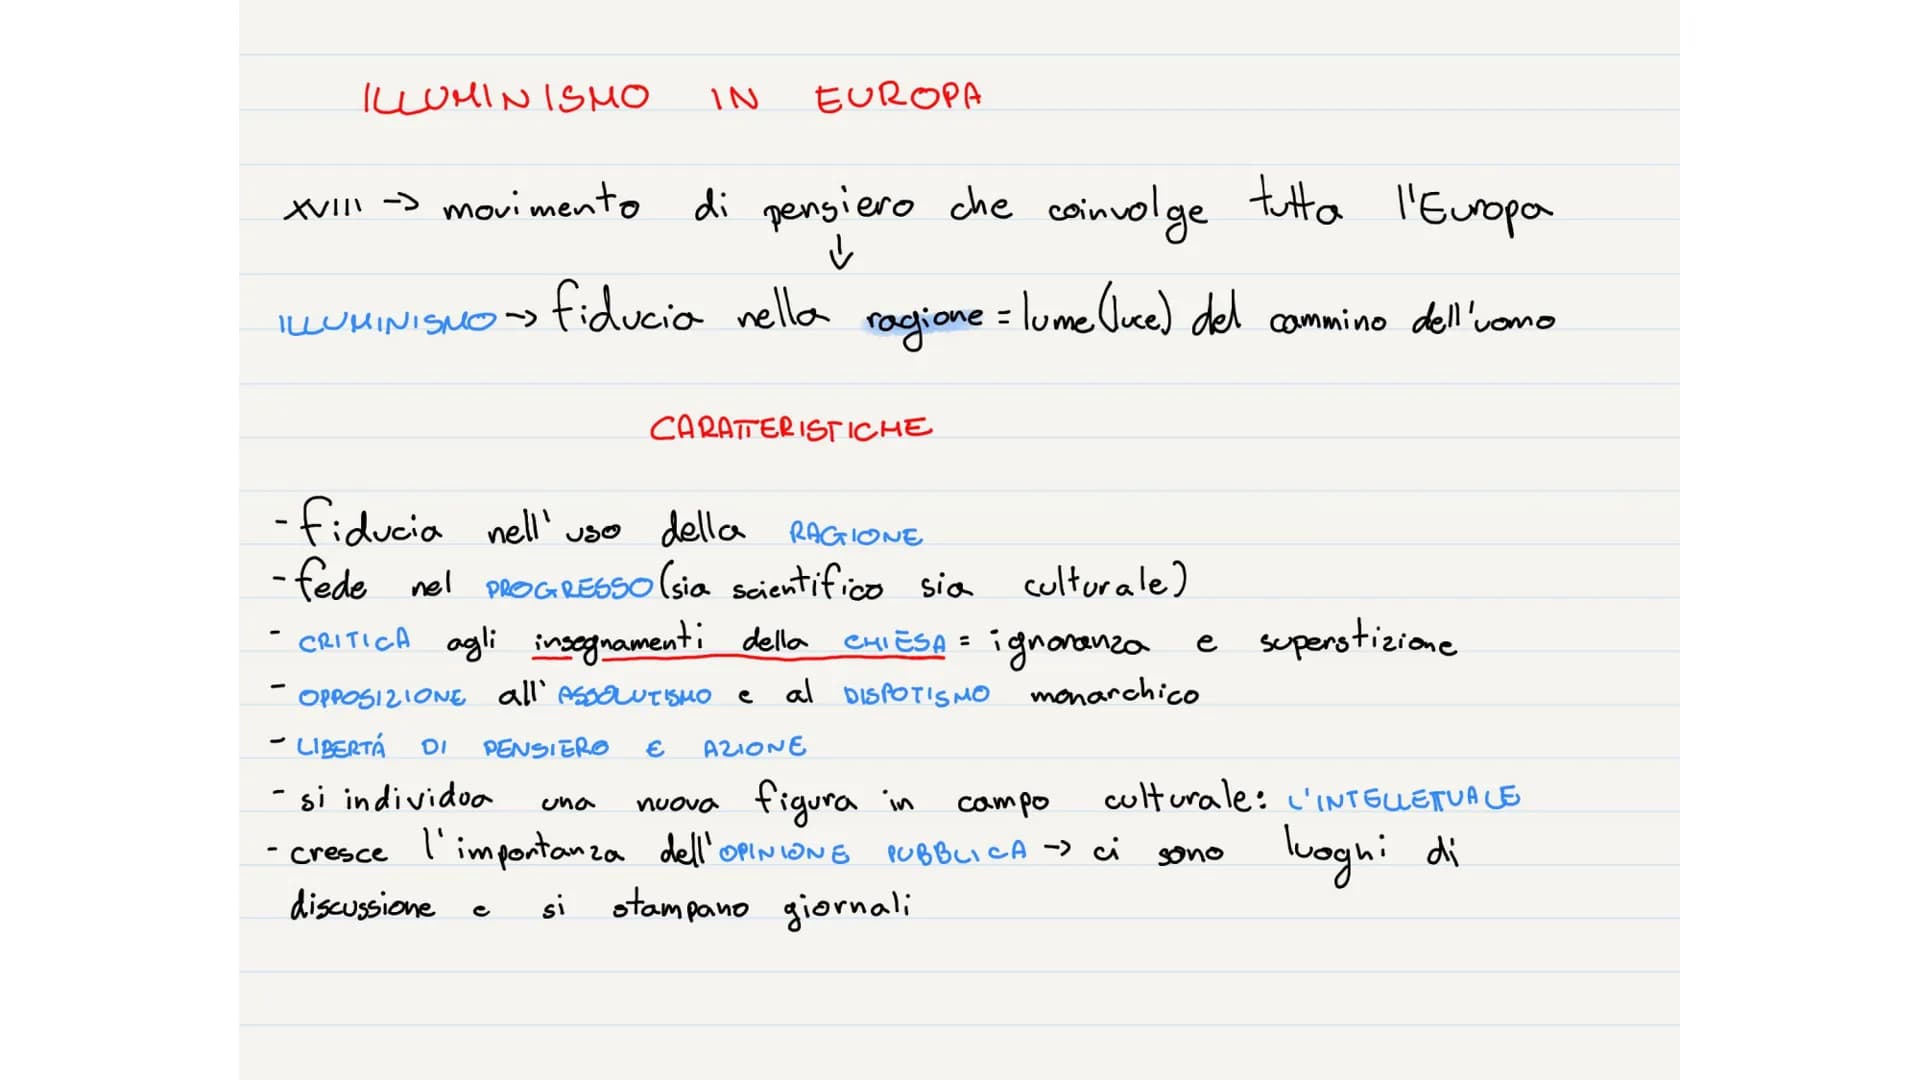 ILLUMINISMO IN EUROPA
XVIII → movimento di pensiero che coinvolge tutta l'Europa
↓
ILLUMINISMO → fiducia nella ragione = lume (luce) del cammino dell'uomo
CARATTERISTICHE
- fiducia nell'uso della RAGIONE
- fede nel PROGRESSO (sia scientifico sia culturale)
- CRITICA agli insegnamenti della CHIESA = ignoranza e superstizione
- OPPOSIZIONE all'ASSOLUTISMO e al DISPOTISMO monarchico
- LIBERTÁ DI PENSIERO E AZIONE
- si individua una nuova figura in campo culturale: L'INTELLETTUALE
- cresce l'importanza dell'OPINIONE PUBBLICA → ci sono luoghi di
discussione e si stampano giornali